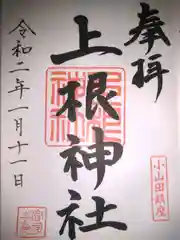 奉拝
上根神社
小山田鎮座
令和二年一月十一日